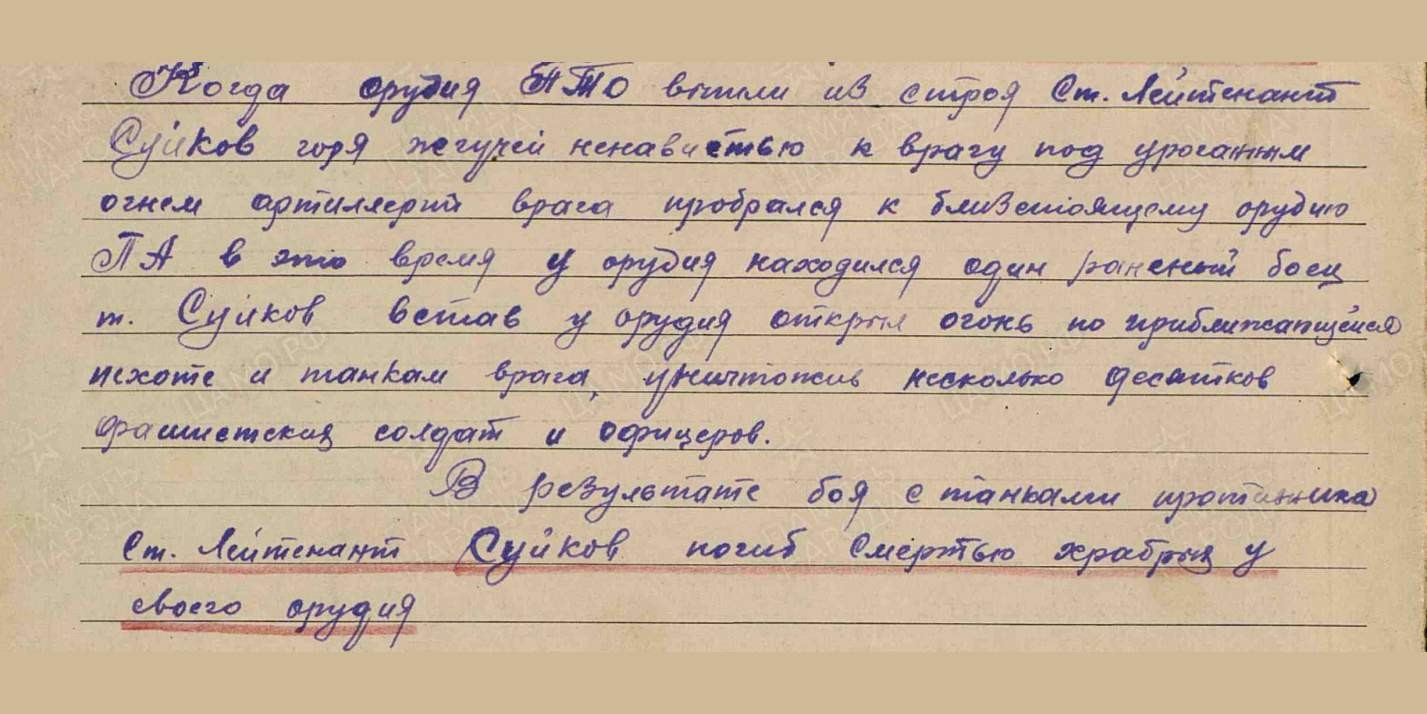 Когда орудия ПТО вышли из строя Ст. Лейтенант
Суйков горя жгучей ненавистью к врагу под ураганным
огнем артиллерии врага пробрался к близстоящему орудию
ПА в это время у орудия находился один раненый боец
т. Суйков встав у орудия открыл огонь по приближающейся
пехоте и танкам врага, уничтожив несколько десятков
фашистских солдат и офицеров.
В результате боя с танками противника
Ст. Лейтенант Суйков погиб смертью храбрых у
своего орудия